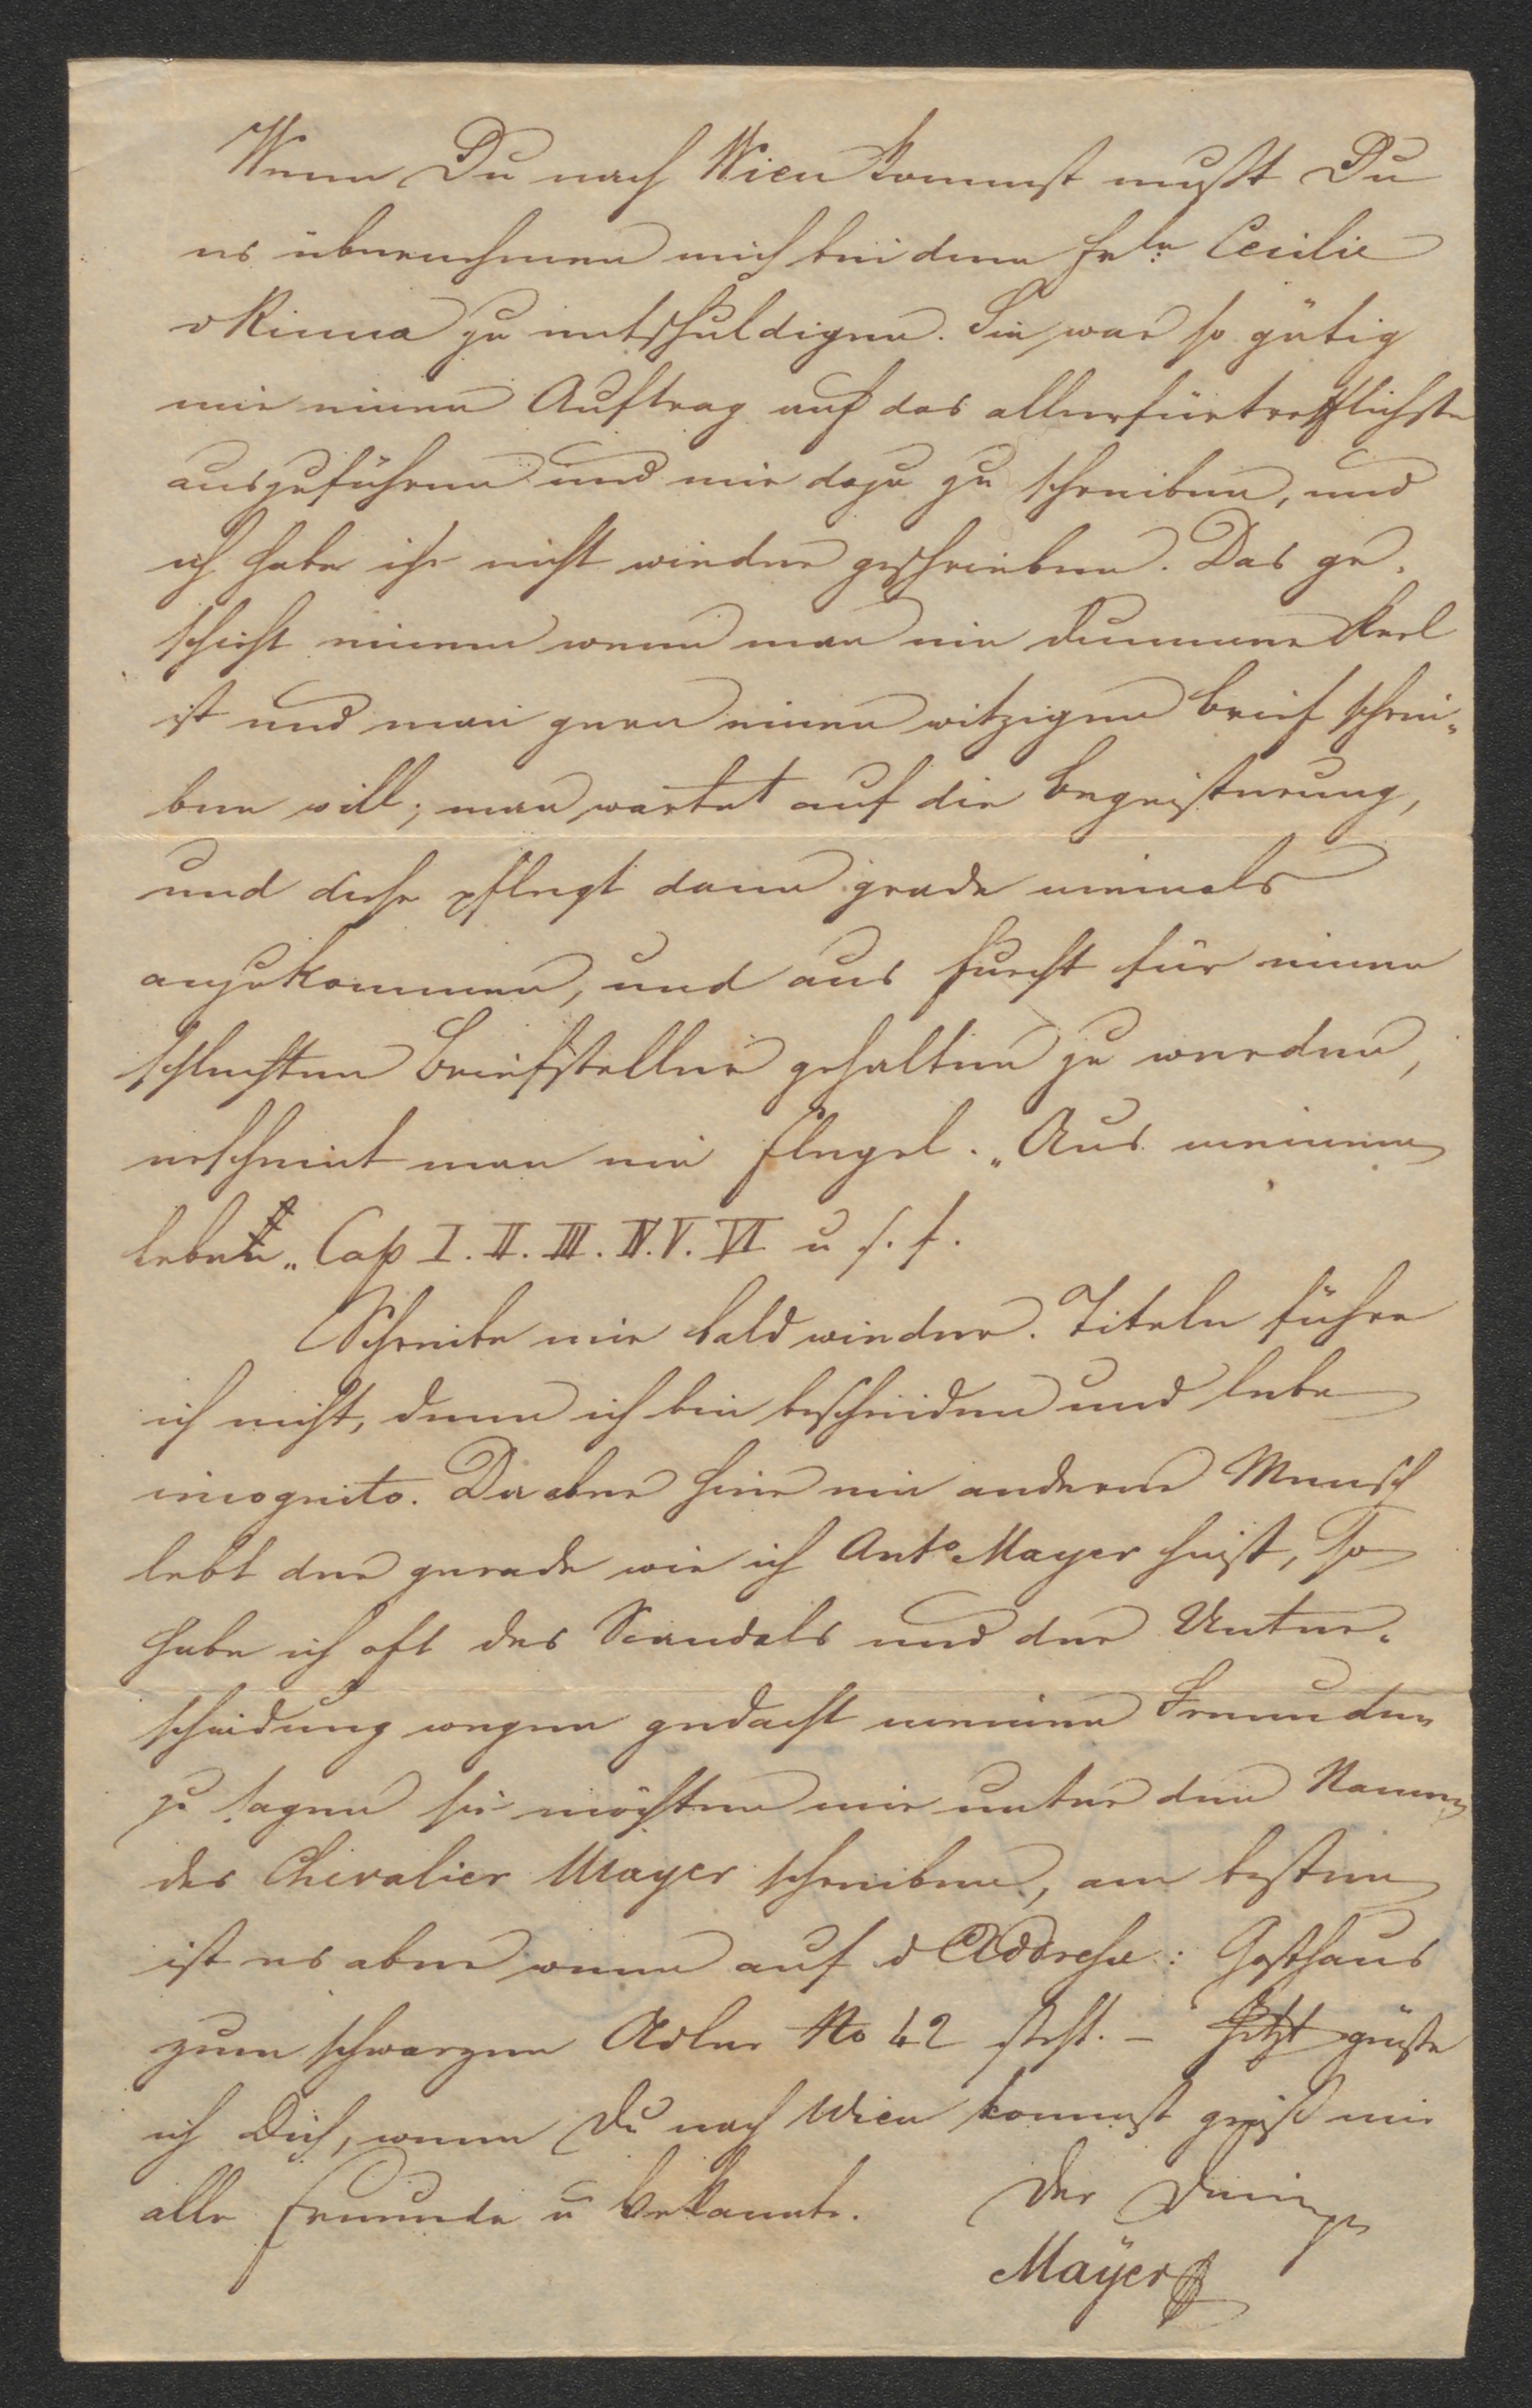 Wenn Du nach Wien kommst mußt Du
es übernehmen mich bei dem Frln Cecilie
v Rinna zu entschuldigen. Sie war so gütig
mir einen Auftrag auf das allerfürtrefflichste
auszuführen und mir dazu zu schreiben, und
ich habe ihr nicht wieder geschrieben. Das ge-
schieht einem wenn man ein dummer Kerl
ist und man gern einen witzigen Brief schrei-
ben will; man wartet auf die Begeisterung,
und diese pflegt dann grade niemals
anzukommen, und aus Furcht für einen
schlechten Briefsteller gehalten zu werden,
erscheint man ein Flegel. „Aus meinem
Leben„ Cap I. II. III. IV. V. VI u s. f.
Schreibe mir bald wieder. Titeln führe
ich nicht, denn ich bin bescheiden und lebe
incognito. Da aber hier ein anderer Mensch
lebt der gerade wie ich Anto Mayer heist, so
habe ich oft des Scandals und der Unter-
scheidung wegen gedacht meinen Freunden
zu sagen sie möchten mir unter dem Namen
des Chevalier Mayer schreiben, am besten
ist es aber wenn auf d Addresse: Gasthaus
zum schwarzen Adler No 42 steht. – Jetzt grüße
ich Dich, wenn Du nach Wien kommst grüß mir
alle Freunde u Bekannte. Der Deinige
Mayer